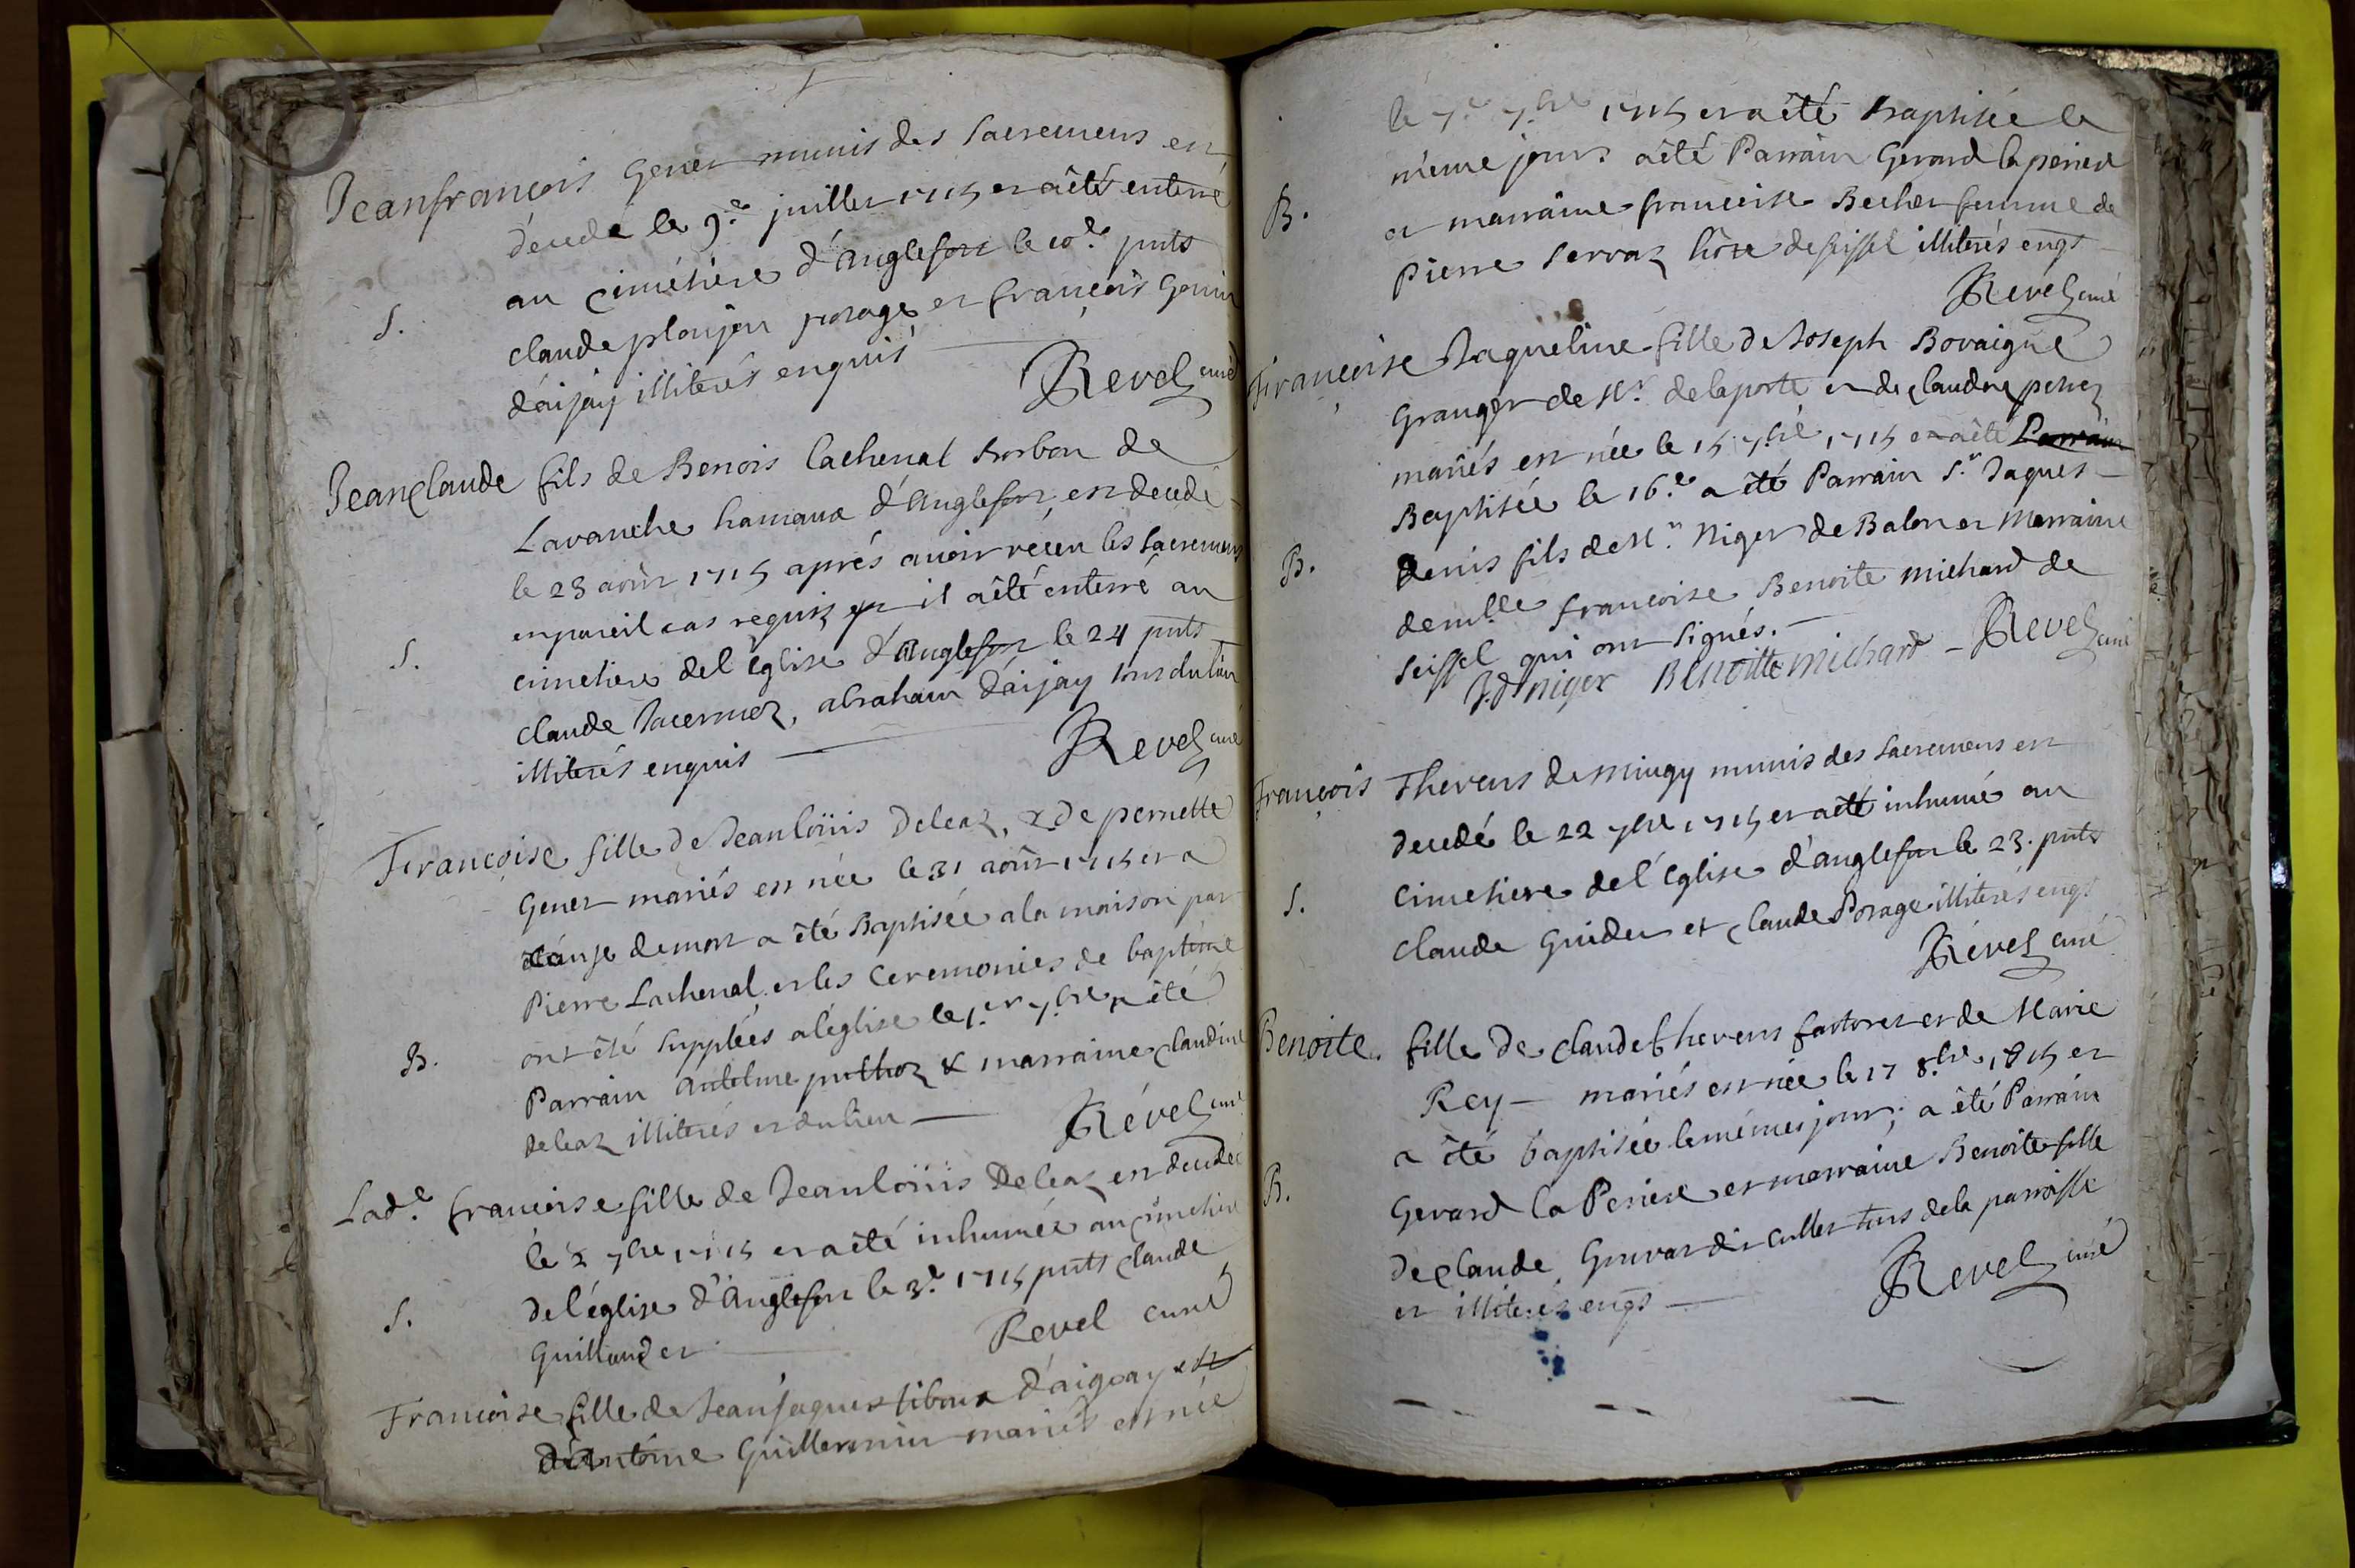 Jeanfrançois Genet munis des sacremens est
décédé le 9.e juillet 1715 et a êté enterré
au cimétiere d'Anglefort le 10.e pnts
S.
claude plonjon porage et françois Genin
d'aijay illiterés enquis
Revel curé
Jeanclaude fils de Benois lachenal borbon de
Lavanche hamaux d'Anglefort, est decedé
le 23 août 1715 aprés avoir réceu les sacremens
en pareil cas requis et il a êté enterré au
S.
cimetiere de l'église d'Anglefort le 24 pnts
claude Jacermoz, abraham d'aijay tous du lieu
illiterés enquis
Revel curé
Françoise fille de Jeanloüis Deleaz, & de pernette
Genet mariés est née le 31 août 1715 et a
danje de mort a êté Baptisée a la maison par
Pierre Lachenal et les Ceremonies de baptême
ont êté supplées a l'église le 1.er 7.bre a êté
B.
Parrain Antelme puthoz & marraine claudine
deleaz illiterés et du lieu
Revel curé
Lad.e françoise fille de Jeanloüis Deleaz est decedée
le 2 7bre 1715 et a êté inhumée au cimetiere
de l'église d'Anglefort le 3.e 1715 pnts claude
S.
Guillaud et
Revel curé
Françoise fille de Jeanjaques tiboux d'aigoay
d'Antoine Guillermin mariés est née
le 7.e 7.bre 1715 et a êté baptisée le
même jour a êté Parrain Gerard la periere
B.
et marraine françoise Becher femme de
Pierre servaz hôte de seissel illiterés enqs
Revel curé
Françoise Jaqueline fille de Joseph Bovaigne
Granger de Mr. de laporte et de claudine perrez
mariés est née le 15 7.bre 1715 et a êté Parrain
Baptisée le 16.e a êté Parrain S.r Jaques
B.
Denis fils de Mr. Niger de Balon et Marraine
dem.lle françoise Benoite michard de
seissel qui ont signés.
J.d niger Benoitte michard Revel curé
François Thevens de Mingy munis des sacremens est
decedé le 22 7bre 1715 et a êté inhumé au
cimetiere de l'église d'anglefort le 23. pnts
S.
claude Guider et claude Porage illiterés enqs
Revel curé
Benoite. fille de claude thevens fortoret et de Marie
Rey mariés est née le 17 8.bre 1715 et
a êté baptisée le même jour; a êté Parrain
B.
Gerard la Periere et marraine Benoite fille
de claude Gruvat de culles tous de la parroisse
et illiterés enqs
Revel curé